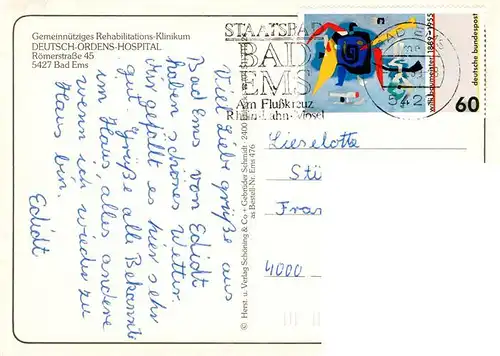 Gemeinnütziges Rehabilitations-Klinikum
DEUTSCH-ORDENS-HOSPITAL
Römerstraße 45
5427 Bad Ems
Viel Liebe grüße aus
Bad Ems von Edidt
haben schönes Wetter.
Mir gefällt es hier sehr
gut. grüße alle Bekannte
im Haus, alles andere
wenn ich wieder zu
Haus bin.
Edidt
© Herst. u. Verlag Schöning & Co + Gebrüder Schmidt · 2400
Bestell-Nr. Ems 476
STAATSBAD
BAD
EMS
Am Flußkreuz
Rhein·Lahn·Mosel
willi baumeister 1889-1955
deutsche bundespost
60
Lieselotte
Sti
Fran
4000